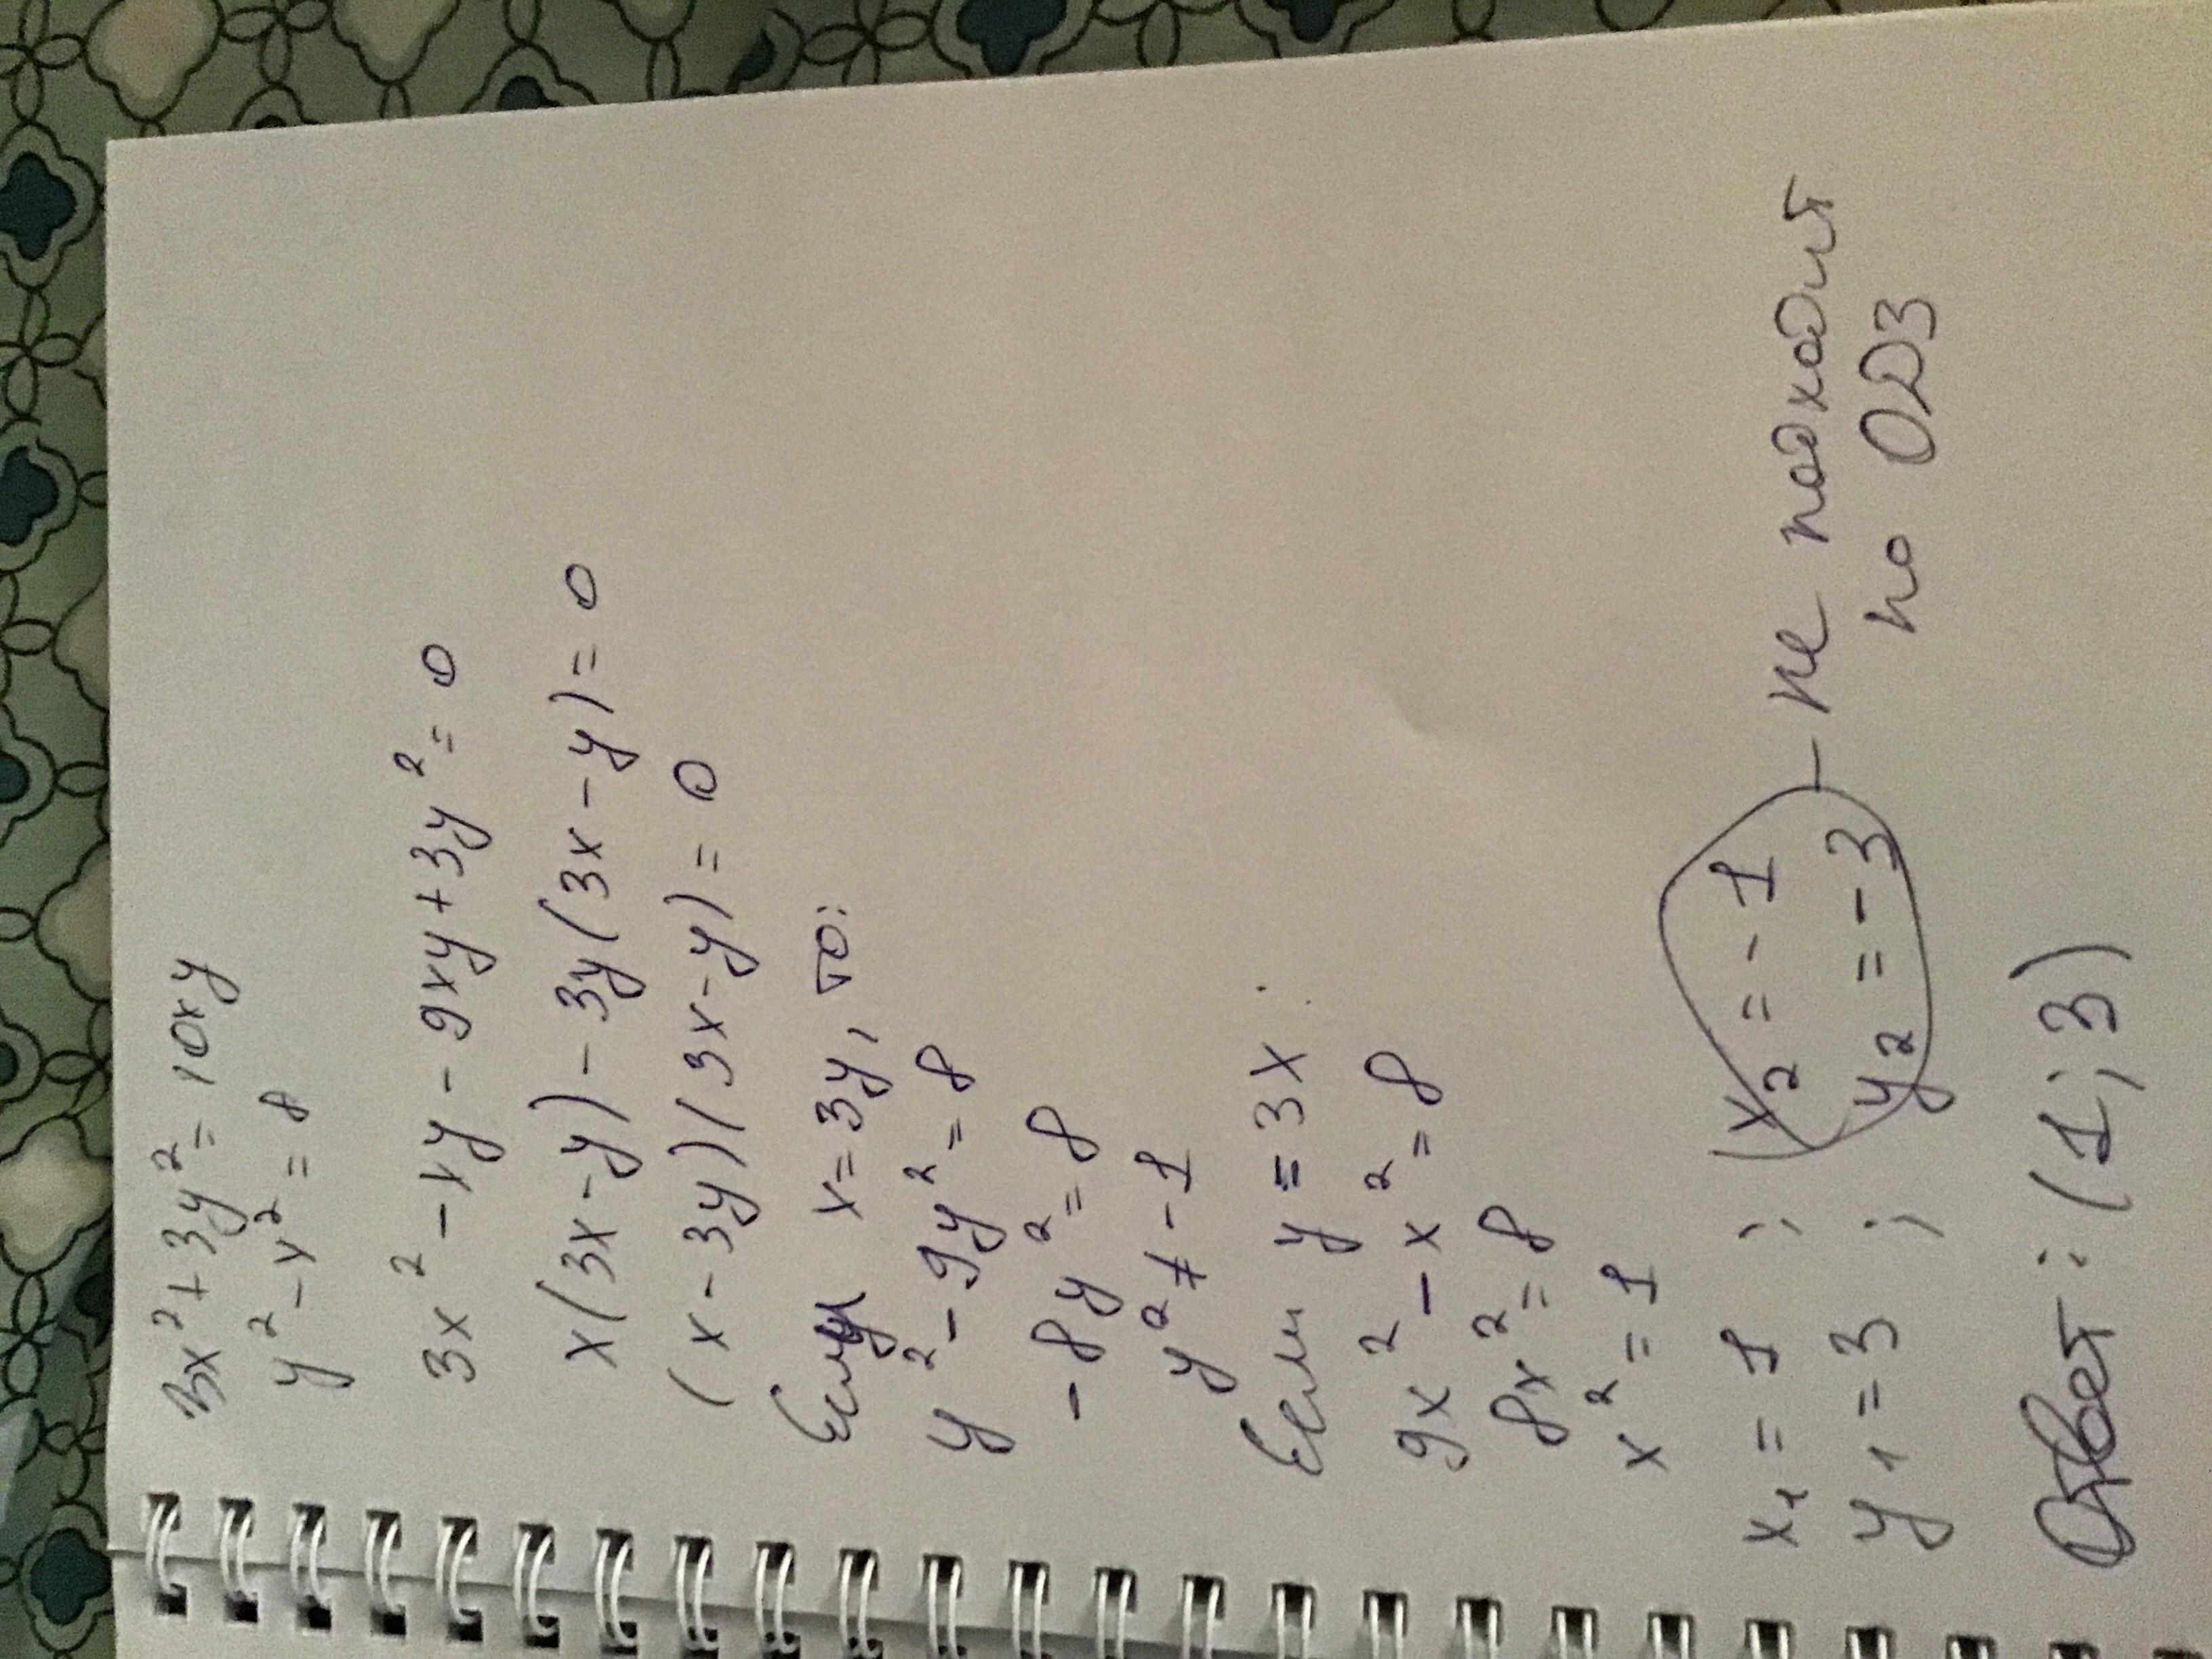 3x² + 3y² = 10xy
y² - x² = 8
3x² - xy - 9xy + 3y² = 0
x(3x - y) - 3y(3x - y) = 0
(x - 3y)(3x - y) = 0
Если x = 3y, то:
y² - 9y² = 8
- 8y² = 8
y² ≠ - 1
Если y = 3x :
9x² - x² = 8
8x² = 8
x² = 1
x₁ = 1 ; x₂ = - 1 - не подходит
y₁ = 3 ; y₂ = - 3 по ОДЗ
Ответ: (1; 3)